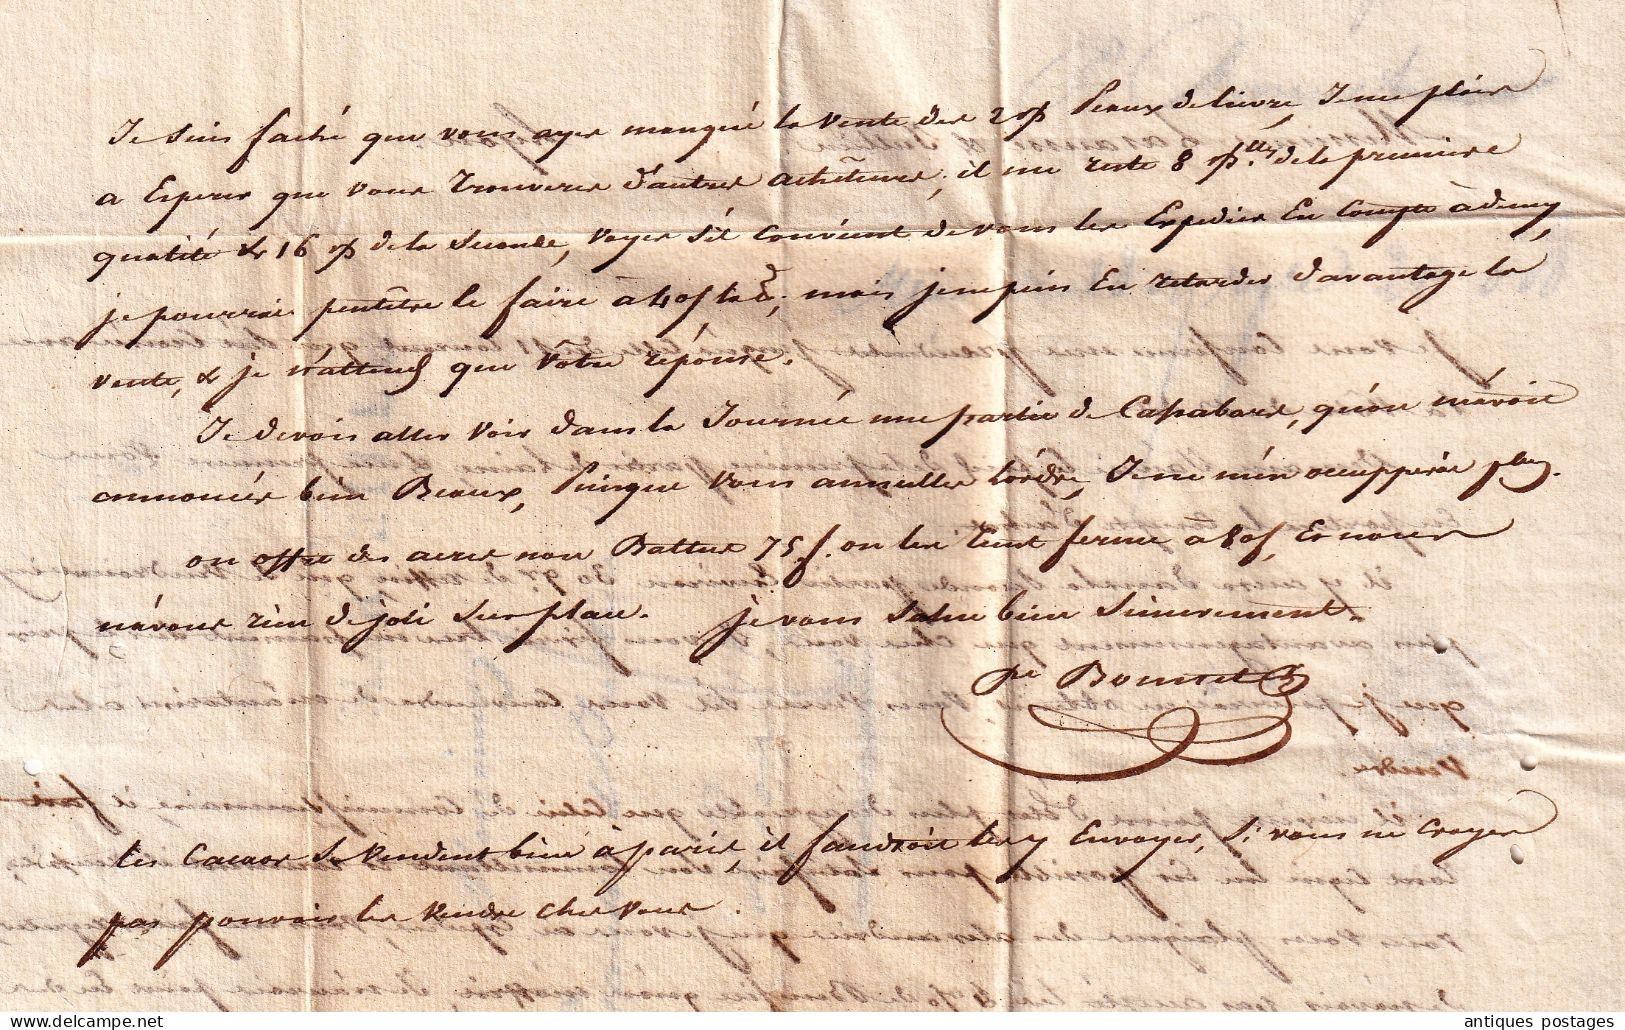 Je suis faché que vous ayez manqué la vente des 2 Peaux de lievre, Je me plais
a Esperer que vous trouverez d'autres acheteurs, il me reste 8 de la premiere
qualité & 16 de la seconde, voyez s'il convient de vous les Expedier En Compte à demy,
je pourrais peutêtre le faire à 40f la, mais je ne puis En retarder davantage la
vente, & je n'attends que vôtre réponse.
Je devois aller voir dans la Journée une partie de, qu'on m'avoit
annoncée bien Beaux, Puisque vous annullez l'ordre, Je ne m'en occupperai plus.
on offre des non Battus 75f. on les tient ferme à 80f, Et nous
n'avons rien de joli sur place. je vous salue bien sincerement.
pe
les Cacaos se vendent bien à paris, il faudroit les y Envoyer, si vous ne croyez
pas pouvoir les vendre chez vous.
antiques postages